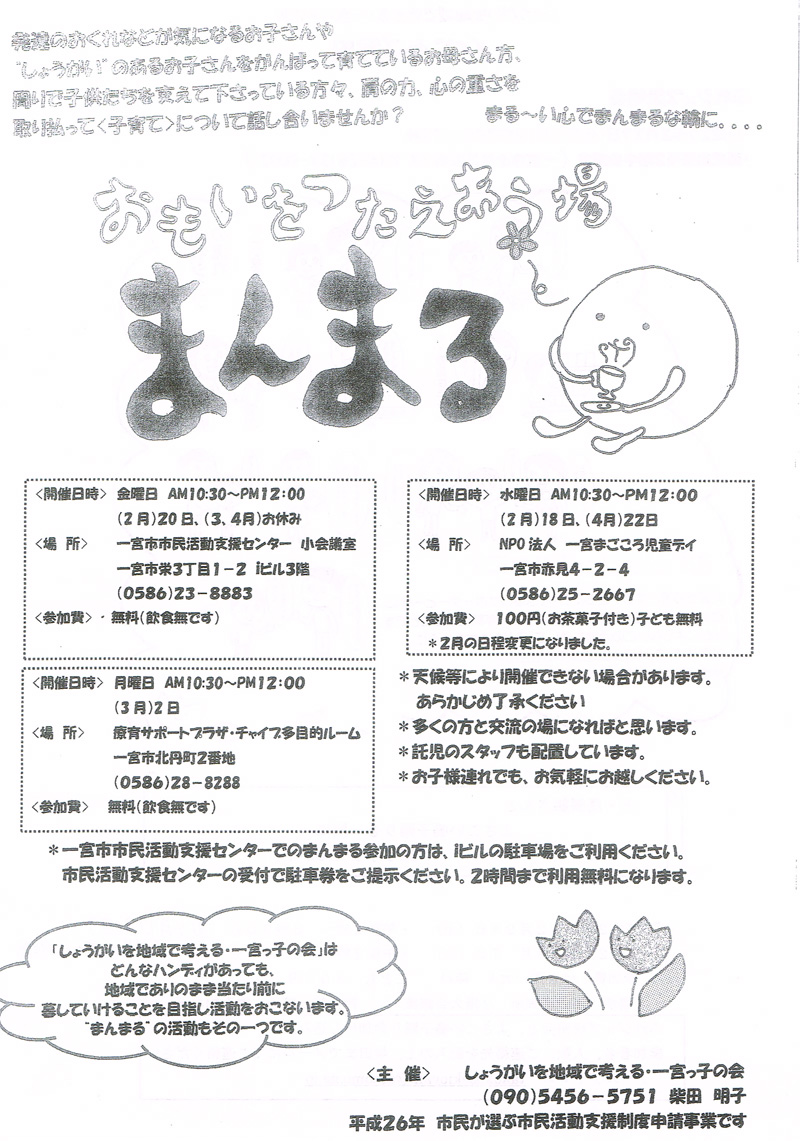 発達のおくれなどが気になるお子さんや
"しょうがい"のあるお子さんをがんばって育てているお母さん方、
周りで子供たちを支えて下さっている方々、肩の力、心の重さを
取り払って<子育て>について話し合いませんか?　まる～い心でまんまるな輪に....
おもいをつたえあう場
まんまる
<開催日時> 金曜日 AM10:30～PM12:00
(2月)20日、(3、4月)お休み
<場 所> 一宮市市民活動支援センター 小会議室
一宮市栄3丁目1-2 iビル3階
(0586)23-8883
<参加費>・無料(飲食無です)
<開催日時> 水曜日 AM10:30～PM12:00
(2月)18日、(4月)22日
<場 所> NPO法人 一宮まごころ児童デイ
一宮市赤見4-2-4
(0586)25-2667
<参加費> 100円(お茶菓子付き)子ども無料
*2月の日程変更になりました。
<開催日時> 月曜日 AM10:30～PM12:00
(3月)2日
<場 所> 療育サポートプラザ・チャイブ多目的ルーム
一宮市北丹町2番地
(0586)28-8288
<参加費> 無料(飲食無です)
*天候等により開催できない場合があります。
あらかじめ了承ください
*多くの方と交流の場になればと思います。
*託児のスタッフも配置しています。
*お子様連れでも、お気軽にお越しください。
*一宮市市民活動支援センターでのまんまる参加の方は、iビルの駐車場をご利用ください。
市民活動支援センターの受付で駐車券をご提示ください。2時間まで利用無料になります。
「しょうがいを地域で考える・一宮っ子の会」は
どんなハンディがあっても、
地域でありのまま当たり前に
暮していけることを目指し活動をおこないます。
"まんまる"の活動もその一つです。
<主 催> しょうがいを地域で考える・一宮っ子の会
(090)5456-5751 柴田 明子
平成26年 市民が選ぶ市民活動支援制度申請事業です